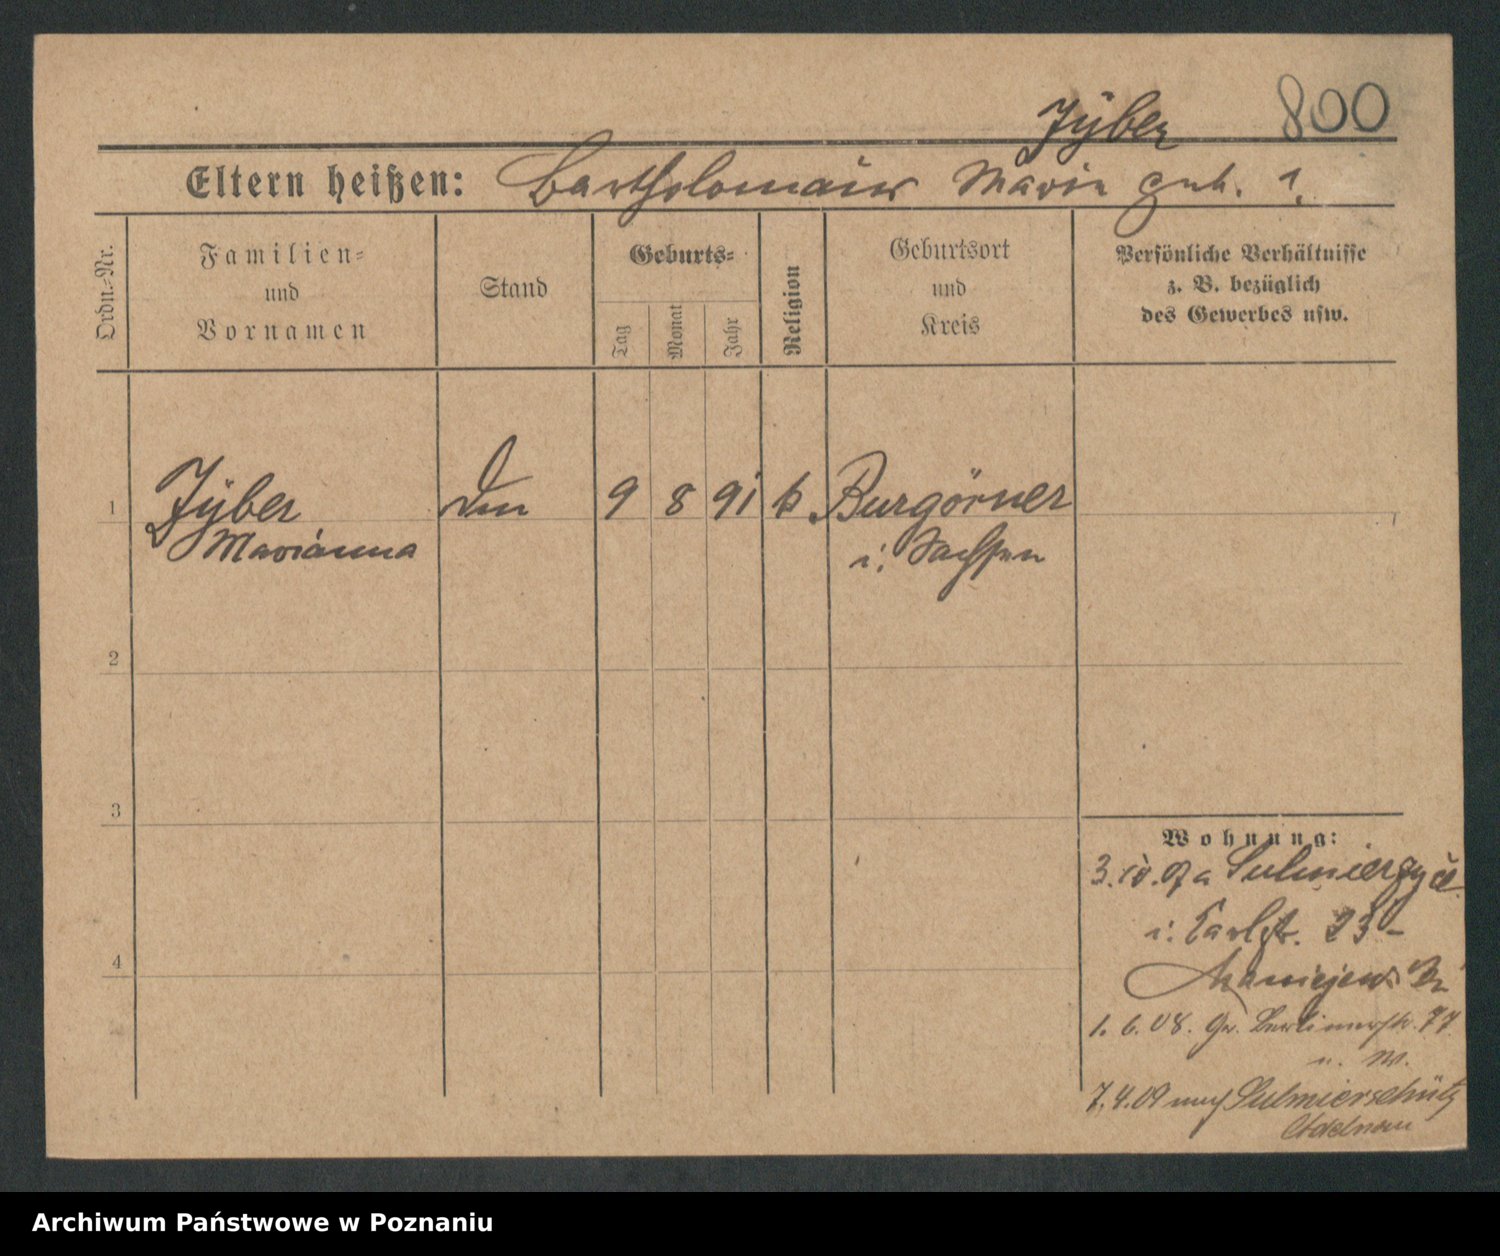 800
Jÿber
Eltern heißen: Bartholomäus Marie geb. ?
Ordn.-Nr.
Familien-
und
Vornamen
Stand
Geburts-
Tag
Monat
Jahr
Religion
Geburtsort
und
Kreis
Persönliche Verhältnisse
z. B. bezüglich
des Gewerbes usw.
1
Jÿber
Marianna
9 8 91 k
Burgörner
i. Sachsen
2
3
4
Wohnung:
3. 10. 07 a Sulmierzyce
i. Carlstr. 23
1. 6. 08. Gr. Berlinerstr. 77
7. 4. 09 nach Sulmierschütz
Adelnau
Archiwum Państwowe w Poznaniu